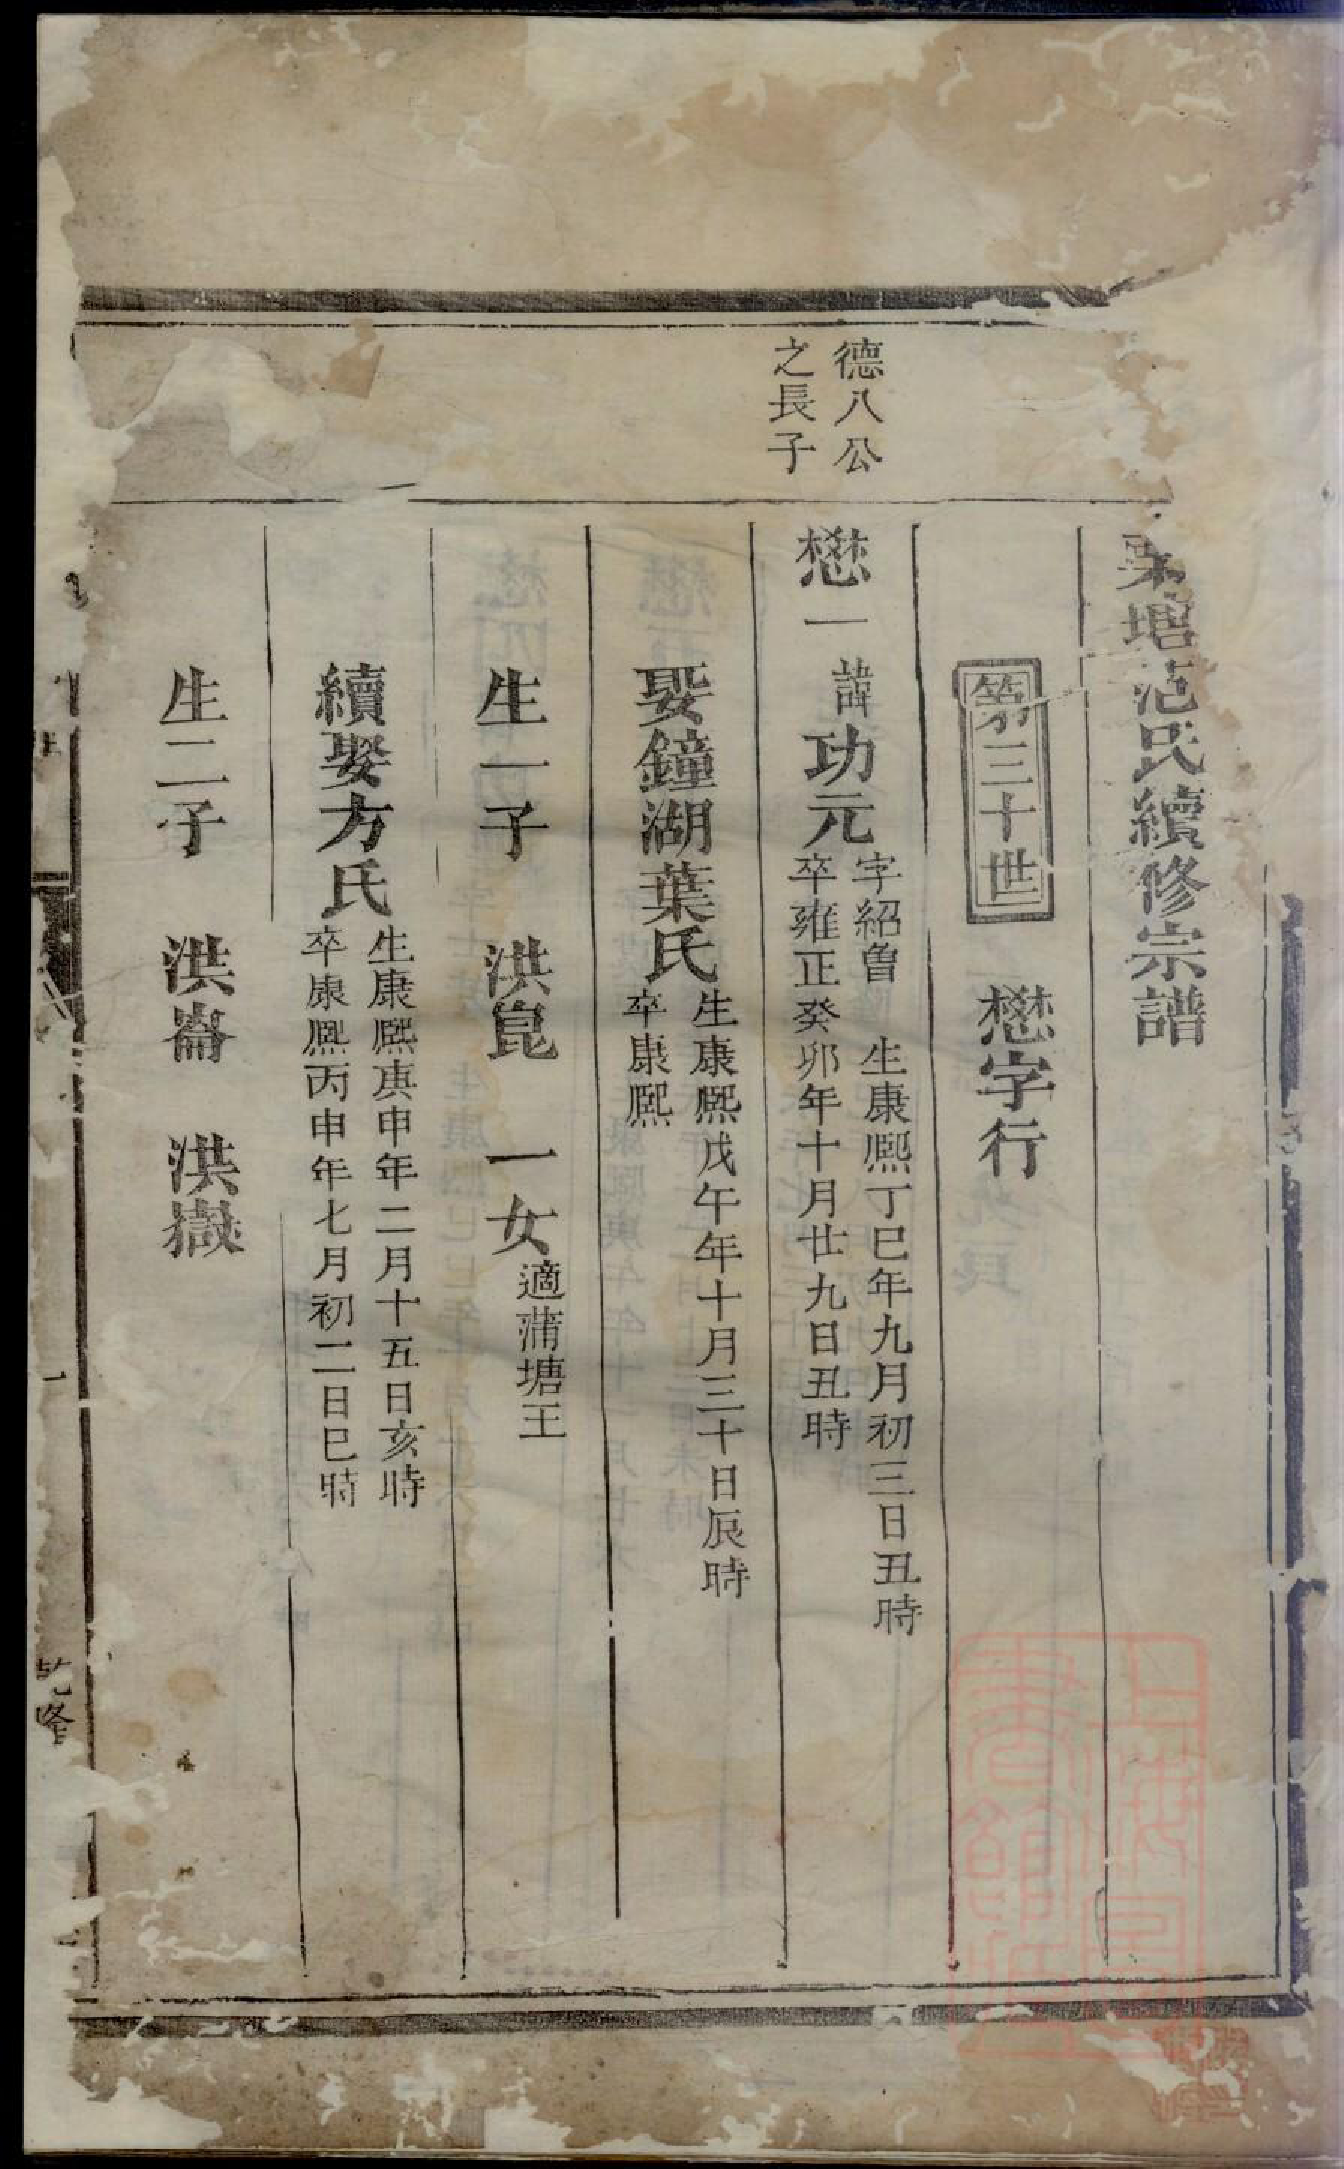 栗墹范氏續修宗譜
第三十世
懋字行
德八公
之長子
懋一諱功元
字紹魯 生康熙丁巳年九月初三日丑時
卒雍正癸卯年十月廿九日丑時
娶鐘湖葉氏
生康熙戊午年十月三十日辰時
卒康熙
生一子 洪崑 一女
適蒲塘王
續娶方氏
生康熙庚申年二月十五日亥時
卒康熙丙申年七月初二日巳時
生二子 洪崙 洪嶽